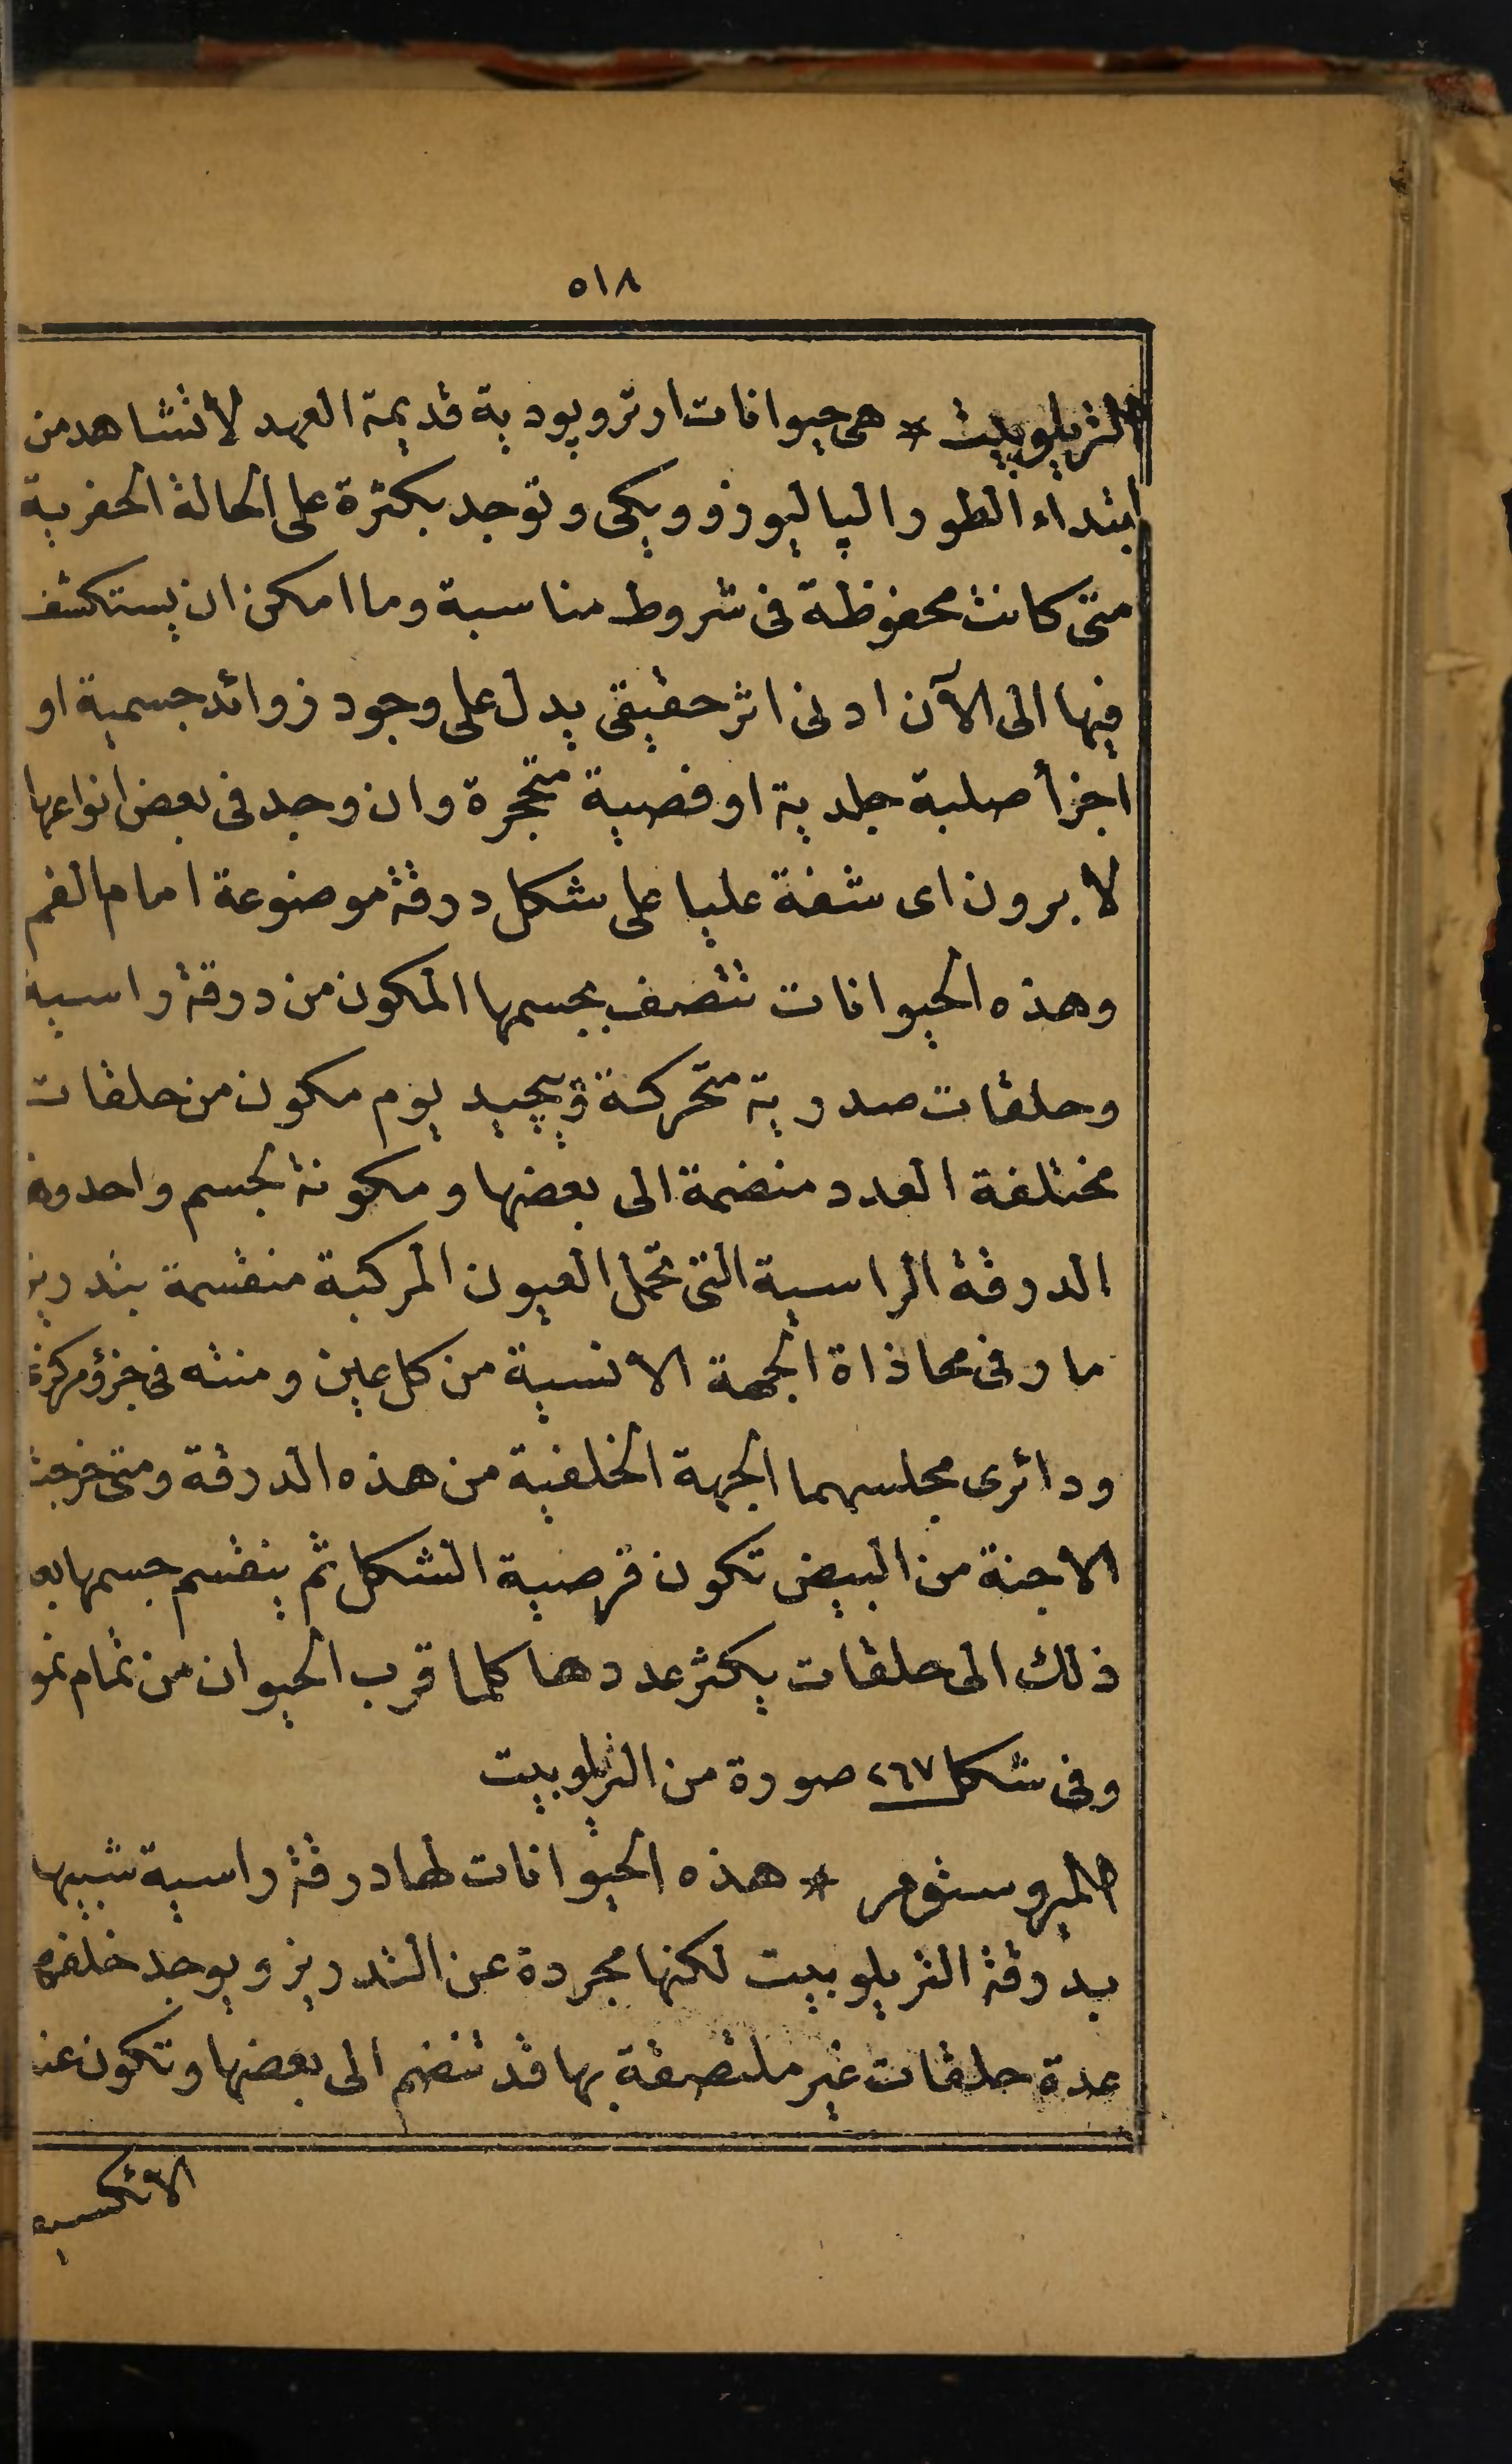 ٥١٨
التريلوبيت * هى حيوانات ارتروپودية قديمة العهد لا تشاهد من
ابتداء الطور الپاليوزوويكى وتوجد بكثرة على الحالة الحفرية
متى كانت محفوظة فى شروط مناسبة وما امكن ان يستكشف
فيها الى الآن ادنى اثر حقيقى يدل على وجود زوائد جسمية او
اجزأ صلبة جلدية او فصية متحجرة وان وجد فى بعض انواعها
لابرون اى شفة عليا على شكل درقة موضوعة امام الفم
وهذه الحيوانات تتصف بجسمها المكون من درقة راسية
وحلقات صدرية متحركة وپيجيديوم مكون من حلقات
مختلفة العدد منضمة الى بعضها ومكونة لجسم واحد وهذه
الدرقة الراسية التى تحمل العيون المركبة منقسمة بتدريز
مار فى محاذاة الجهة الانسية من كل عين ومنته فى جزؤ مركزى
ودائرى مجلسهما الجهة الخلفية من هذه الدرقة ومتى خرجت
الاجنة من البيض تكون قرصية الشكل ثم ينقسم جسمها بعد
ذلك الى حلقات يكثر عددها كلما قرب الحيوان من تمام نمو
وفى شكل ٢٦٧ صورة من التريلوبيت
الميروستومر * هذه الحيوانات لها درقة راسية شبيها
بدرقة التريلوبيت لكنها مجردة عن التدريز ويوجد خلفها
عدة حلقات غير ملتصقة بها قد تنضم الى بعضها وتكون عند